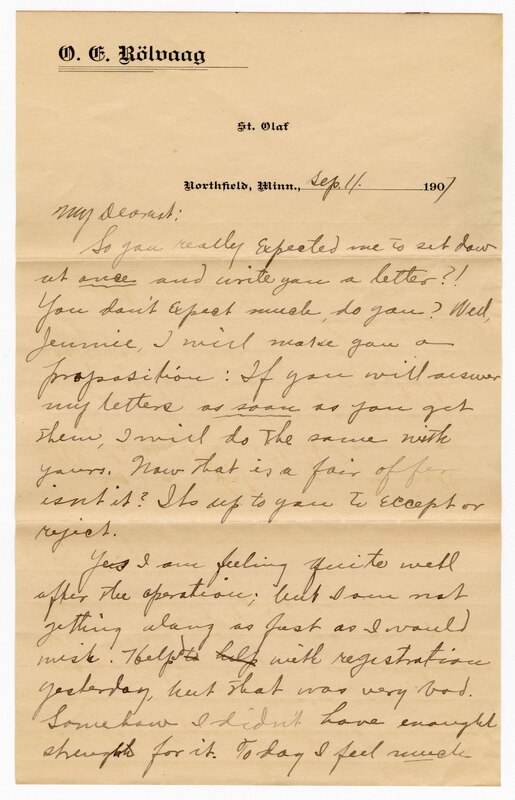 O. E. Rölvaag
St. Olaf
Northfield, Minn., Sep. 11. 1907
My Dearest:
So you really Expected me to set dow
at once and write you a letter?!
You don't Expect much, do you? Well,
Jennie, I will make you a
proposition: If you will answer
my letters as soon as you get
them, I will do the same with
yours. Now that is a fair offer
isnt it? Its up to you to Eccept or
reject.
Yes I am feeling quite well
after the operation; but I am not
getting along as fast as I would
wish. Help'd to help with registration
yesterday, but that was very bad.
Somehow I didn't have enought
strength for it. Today I feel much